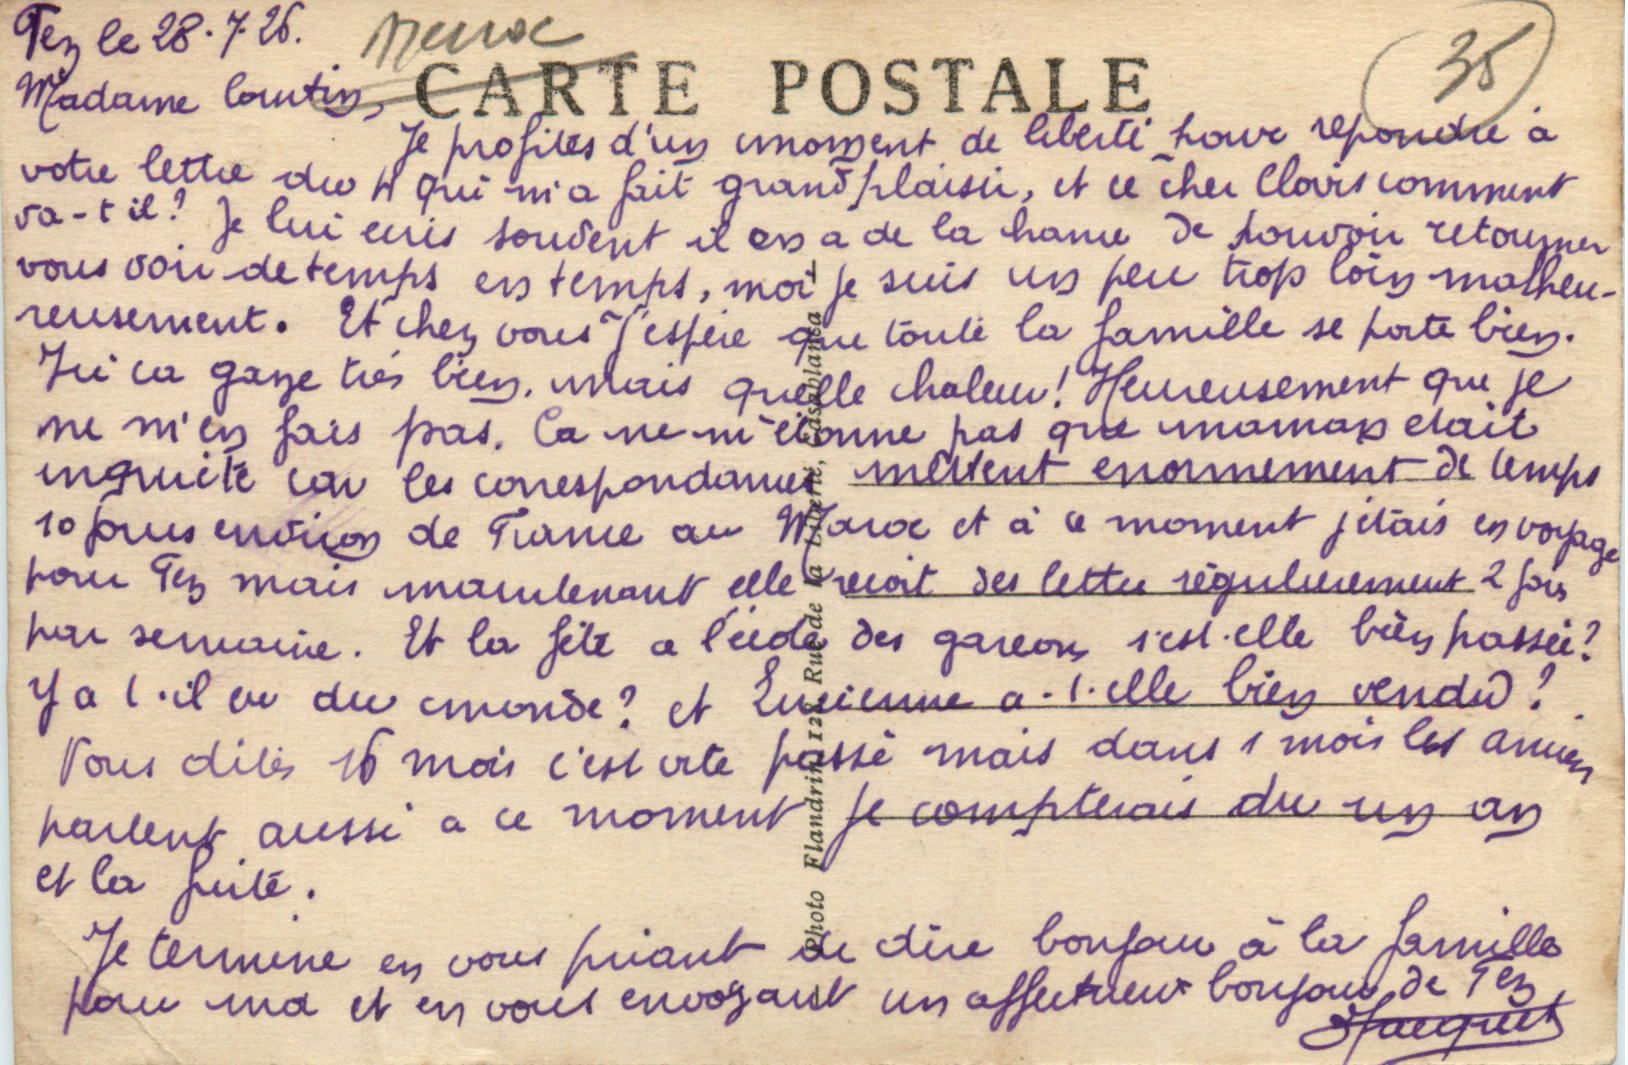 Fez le 28.7.26.
Maroc
35
CARTE POSTALE
Madame Coutin,
Je profites d'un moment de liberté pour repondre à
votre lettre du 4 qui m'a fait grand plaisir, et ce cher Clovis comment
va-t il? Je lui ecris souvent il en a de la chance de pouvoir retourner
vous voir de temps en temps, moi je suis un peu trop loin malheu-
reusement. Et chez vous j'espère que toute la famille se porte bien.
Ici ca gaze très bien, mais quelle chaleur! Heureusement que je
ne m'en fais pas. Ca ne m'étonne pas que maman etait
inquiète car les correspondances mettent enormement de temps
10 jours environ de France au Maroc et à ce moment j'étais en voyage
pour Fez mais maintenant elle recoit des lettres régulierement 2 fois
par semaine. Et la fête a l'école des garcons s'est-elle bien passée?
Y a t-il eu du monde? et Lucienne a-t-elle bien vendu?
Vous dites 16 mois c'est vite passé mais dans 1 mois les anciens
partent aussi a ce moment je compterais du un an
et la fuite.
Je termine en vous priant de dire bonjour à la famille
pour moi et en vous envoyant un affectueux bonjour de Fez
Jacquet
Photo Flandrin, 128 Rue de la Liberté, Casablanca